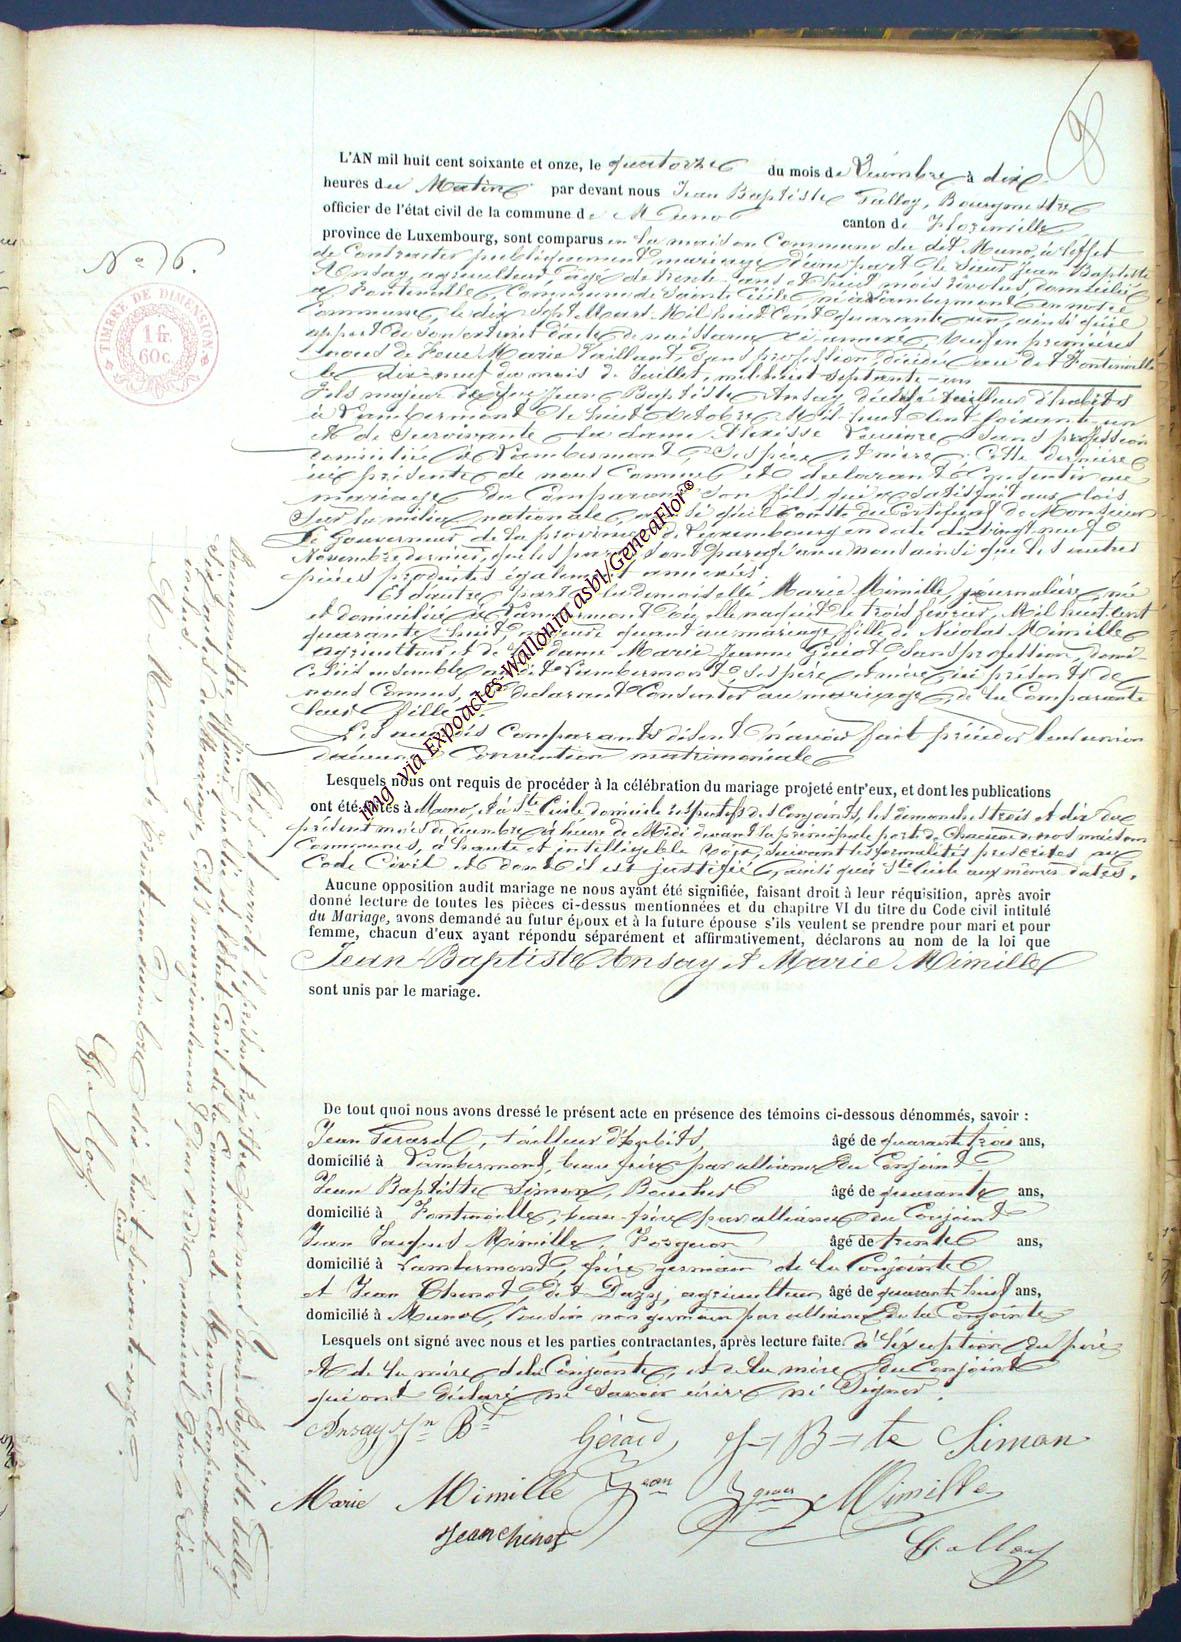 98
L'AN mil huit cent soixante et onze, le quatorze du mois de Décembre à dix
heures du Matin par devant nous Jean Baptiste Talloy, Bourgmestre
officier de l'état civil de la commune de Muno canton de Florenville
province de Luxembourg, sont comparus en la maison Commune du dit Muno, à l'effet
de Contracter publiquement mariage, d'une part, le Sieur Jean Baptiste
Ansay, agriculteur, âgé de trente ans et huit mois révolus, domicilié
à Fontenoille, Commune de Sainte Cécile, né à Lambermont en notre
Commune, le dix Sept Mars Mil huit Cent quarante un, ainsi qu'il
appert de son extrait d'acte de naissance ci annexé, Veuf en premières
noces de Feue Marie Vaillant, Sans profession, décédée au dit Fontenoille
le dix-neuf du mois de Juillet, mil huit septante-un
fils majeur de feu Jean Baptiste Ansay, décédé tailleur d'habits
à Lambermont le huit Octobre Mil huit Cent soixante un
Et de survivante la dame Sans profession
domiciliée à Lambermont, Ses père et mère; Cette dernière
ici présente de nous Connue et déclarant Consentir au
mariage du Comparant Son fils, qui a Satisfait aux lois
Sur la milice nationale, ainsi qu'il Conste du Certificat de Monsieur
le Gouverneur de la province de Luxembourg en date du vingt neuf
Novembre dernier, que les parties ont paraphé avec nous ainsi que les autres
pièces produites également annexées.
Et d'autre part la demoiselle Marie Mimille, journalière, née
et domiciliée à Lambermont où elle naquit le trois février Mil huit Cent
quarante huit, majeure quant au mariage, fille de Nicolas Mimille
agriculteur et de la dame Marie Jeanne Guiot, Sans profession, domi-
ciliés ensemble au dit Lambermont Ses père et mère, ici présents de
nous Connus, et déclarant Consentir au mariage de la Comparante
leur fille.
Les susdits Comparants disent n'avoir fait précéder leur union
d'aucune Convention matrimoniale
Lesquels nous ont requis de procéder à la célébration du mariage projeté entr'eux, et dont les publications
ont été faites à Muno, et à Ste Cécile domicile respectifs des Conjoints, les dimanches trois et dix du
présent mois de décembre à heure de Midi devant la principale porte de Chacune de nos maisons
Communes, à haute et intelligible voix, suivant les formalités prescrites au
Code Civil et dont il est justifié, ainsi qu'à Ste Cécile aux mêmes dates.
Aucune opposition audit mariage ne nous ayant été signifiée, faisant droit à leur réquisition, après avoir
donné lecture de toutes les pièces ci-dessus mentionnées et du chapitre VI du titre du Code civil intitulé
du Mariage, avons demandé au futur époux et à la future épouse s'ils veulent se prendre pour mari et pour
femme, chacun d'eux ayant répondu séparément et affirmativement, déclarons au nom de la loi que
Jean-Baptiste Ansay et Marie Mimille
sont unis par le mariage.
De tout quoi nous avons dressé le présent acte en présence des témoins ci-dessous dénommés, savoir :
Jean Gerard, tailleur d'habits, âgé de quarante trois ans,
domicilié à Lambermont, beau frère par alliance du Conjoint
Jean Baptiste Simon, âgé de quarante ans,
domicilié à Fontenoille, beau-frère par alliance du Conjoint
Jean Jacques Mimille, Forgeron âgé de trente ans,
domicilié à Lambermont, frère germain de la Conjointe
et Jean Chenot dit Dazy, agriculteur âgé de quarante huit ans,
domicilié à Muno, Cousin non germain par alliance de la Conjointe
Lesquels ont signé avec nous et les parties contractantes, après lecture faite à l'exception du père
Et de la mère de la Conjointe, et de la mère du Conjoint
qui ont déclaré ne Savoir écrire ni Signer.
Ansay Jn Bte
Gérard Jean
J-B-te Simon
Marie Mimille
Jques Mimille
Jean Chenot
Talloy
No 76.
TIMBRE DE DIMENSION
1 fr.
60 c.
Clos et arrêté le présent registre par nous Jean Baptiste Talloy
Bourgmestre, officier public de l'état-Civil de la Commune de Muno, Comprenant
Seize actes de Mariage, Cotés marginalement par ordre numéral d'un à Seize
inclus.
A Muno le trente-un décembre dix huit Cent soixante-onze.
Talloy.
img via Expoactes-Wallonia asbl/GeneaFlor®